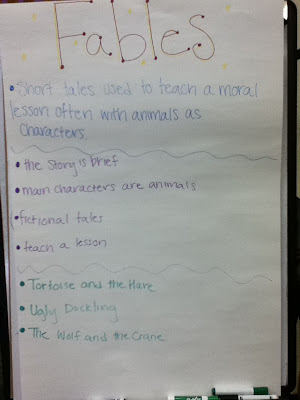 Fables
• Short tales used to teach a moral
lesson often with animals as
characters.
• the story is brief
• main characters are animals
• fictional tales
• teach a lesson
• Tortoise and the Hare
• Ugly Duckling
• The Wolf and the Crane